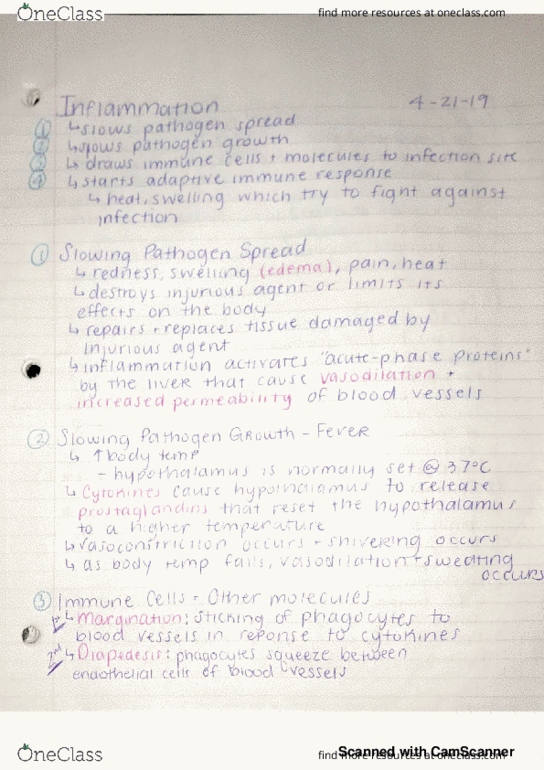 OneClass
find more resources at oneclass.com
Inflammation
4-21-19
① ↳ slows pathogen spread
② ↳ slows pathogen growth
③ ↳ draws immune cells + molecules to infection site
④ ↳ starts adaptive immune response
↳ heat, swelling which try to fight against
infection
① Slowing Pathogen Spread
↳ redness, swelling (edema), pain, heat
↳ destroys injurious agent or limits its
effects on the body
↳ repairs + replaces tissue damaged by
injurious agent
↳ inflammation activates "acute-phase proteins"
by the liver that cause vasodilation +
increased permeability of blood vessels
② Slowing Pathogen Growth - Fever
↳ ↑ body temp
- hypothalamus is normally set @ 37°C
↳ Cytokines cause hypothalamus to release
prostaglandins that reset the hypothalamus
to a higher temperature
↳ vasoconstriction occurs + shivering occurs
↳ as body temp falls, vasodilation + sweating
occurs
③ Immune Cells + Other molecules
1st ↳ Margination: sticking of phagocytes to
blood vessels in reponse to cytokines
2nd ↳ Diapedesis: phagocytes squeeze between
endothelial cells of blood vessels
OneClass
find more resources at oneclass.com
Scanned with CamScanner